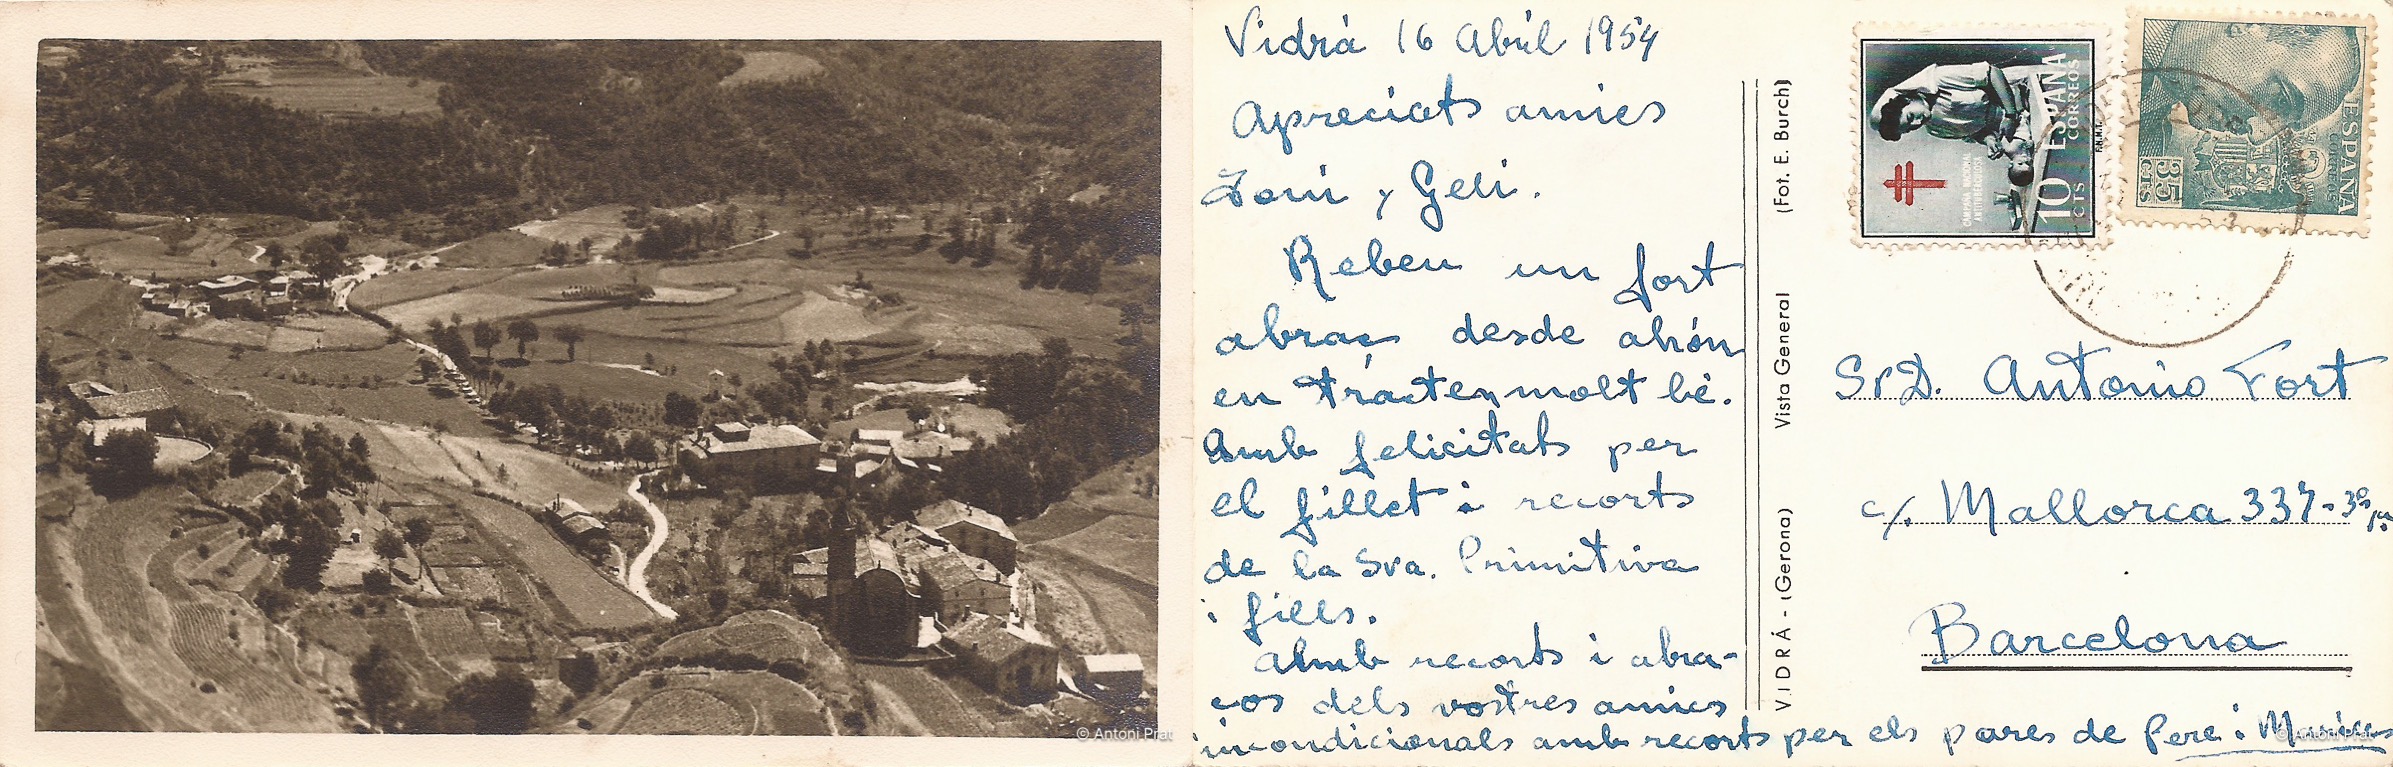 © Antoni Prat
Vidrá 16 Abril 1954
Apreciats amics
Toni y Geli.
Rebeu un fort
abraç desde ahón
en tracten molt bé.
Amb felicitats per
el fillet i recorts
de la Sra. Primitiva
i fills.
Amb recorts i abra-
ços dels vostres amics
incondicionals amb recorts per els pares de Pere i
VIDRÁ - (Gerona) Vista General (Fot. E. Burch)
10 CTS
ESPAÑA
CORREOS
CAMPAÑA NACIONAL
ANTITUBERCULOSA
F.N.M.T.
35 CTS
ESPAÑA
CORREOS
Sr D. Antonio Fort
c/. Mallorca 337-3º
Barcelona
© Antoni Prat